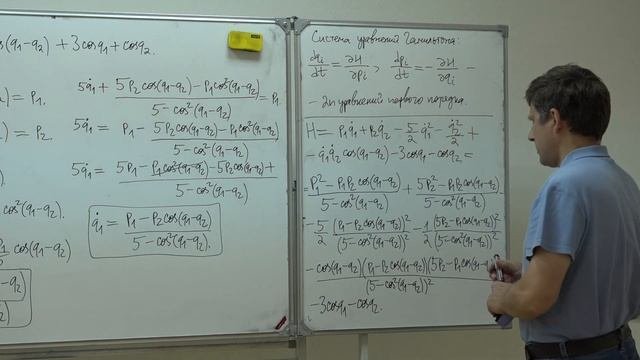 os(q₁-q₂) + 3cosq₁ + cosq₂.
) = P₁.
) = P₂
cos²(q₁-q₂).
cos(q₁-q₂)
-q₂)
5q̇₁ + (5P₂cos(q₁-q₂) - P₁cos²(q₁-q₂))/(5-cos²(q₁-q₂)) = P₁.
5q̇₁ = P₁ - (5P₂cos(q₁-q₂) - P₁cos²(q₁-q₂))/(5-cos²(q₁-q₂))
5q̇₁ = (5P₁ - P₁cos²(q₁-q₂) - 5P₂cos(q₁-q₂) +)/(5-cos²(q₁-q₂))
q̇₁ = (P₁ - P₂cos(q₁-q₂))/(5-cos²(q₁-q₂)).
Система уравнений Гамильтона:
dqᵢ/dt = ∂H/∂pᵢ, dpᵢ/dt = -∂H/∂qᵢ -
- 2n уравнений первого порядка.
H = P₁q̇₁ + P₂q̇₂ - 5/2 q̇₁² - q̇₂²/2 +
- q̇₁q̇₂cos(q₁-q₂) - 3cosq₁ - cosq₂ =
= (P₁² - P₁P₂cos(q₁-q₂))/(5-cos²(q₁-q₂)) + (5P₂² - P₁P₂cos(q₁-q₂))/(5-cos²(q₁-q₂))
- 5/2 (P₁-P₂cos(q₁-q₂))²/(5-cos²(q₁-q₂))² - 1/2 (5P₂-P₁cos(q₁-q₂))²/(5-cos²(q₁-q₂))²
- cos(q₁-q₂)(P₁-P₂cos(q₁-q₂))(5P₂-P₁cos(q₁-q₂)/(5-cos²(q₁-q₂))²
- 3cosq₁ - cosq₂.